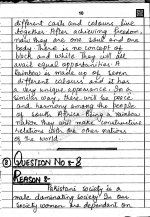 10
different casts and colours live
together. After achieving freedom,
now they are one soul and one
body. There is no concept of
black and white. They will all
avail equal opportunities. A
Rainbow is made up of seven
different colours and it has
a very unique appearance. In a
similar way, there will be peace
and harmony among the people
of South Africa. Being a rainbow
nation, they will make constructive
relations with the other nations
of the world.
QUESTION No #-8
REASON 8-
Pakistani Society is a
male dominating society. In our
society women are dependent on